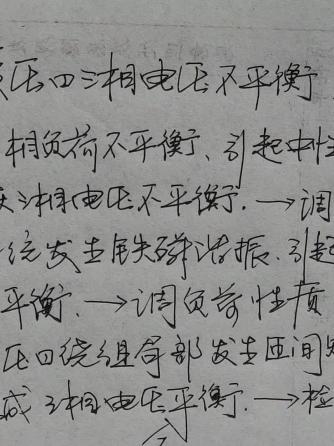 压四三相电压不平衡
相负荷不平衡、引起中性
三相电压不平衡.→调
统发生铁磁谐振.引起
平衡.→调负荷性质
压四绕组局部发生匝间短
成三相电压平衡.→检